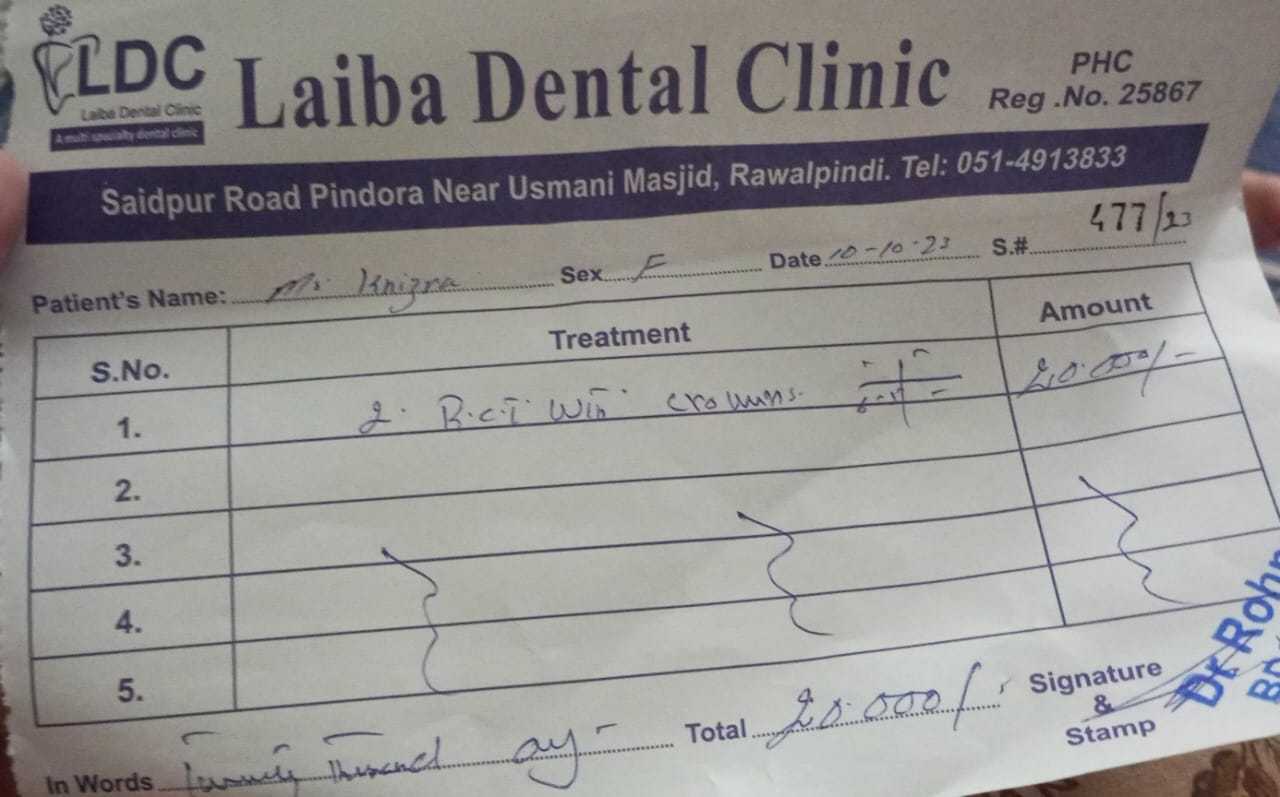 LDC
Laiba Dental Clinic
A multi specialty dental clinic
Laiba Dental Clinic
PHC
Reg .No. 25867
Saidpur Road Pindora Near Usmani Masjid, Rawalpindi. Tel: 051-4913833
Patient's Name: Knizra Sex F Date 10-10-23 S.# 477/23
S.No. Treatment Amount
1. 2. R.C.T with crowns. 20.000/-
2.
3.
4.
5.
In Words Twenty Thousand only Total 20.000/- Signature
&
Stamp
Dr. Roh